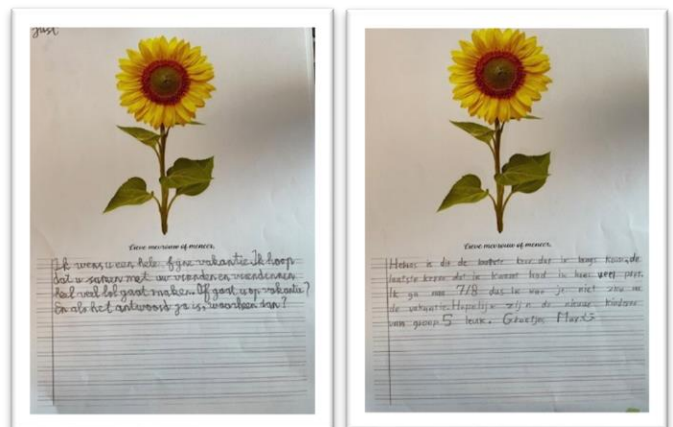 just
Lieve mevrouw of meneer,
Ik wens u een hele fijne vakantie. Ik hoop
dat u samen met uw vrienden en vriendinnen
heel veel lol gaat maken. Of gaat u op vakantie?
En als het antwoord ja is, waarheen dan?
Lieve mevrouw of meneer,
Helaas is dit de keer dat ik langs kom, de
laatste keren dat ik kwam had ik heel veel pret.
Ik ga naar 7/8 dus ik van je niet zou na
de vakantie. Hopelijk zijn de nieuwe kinderen
van groep 5 leuk. Groetjes